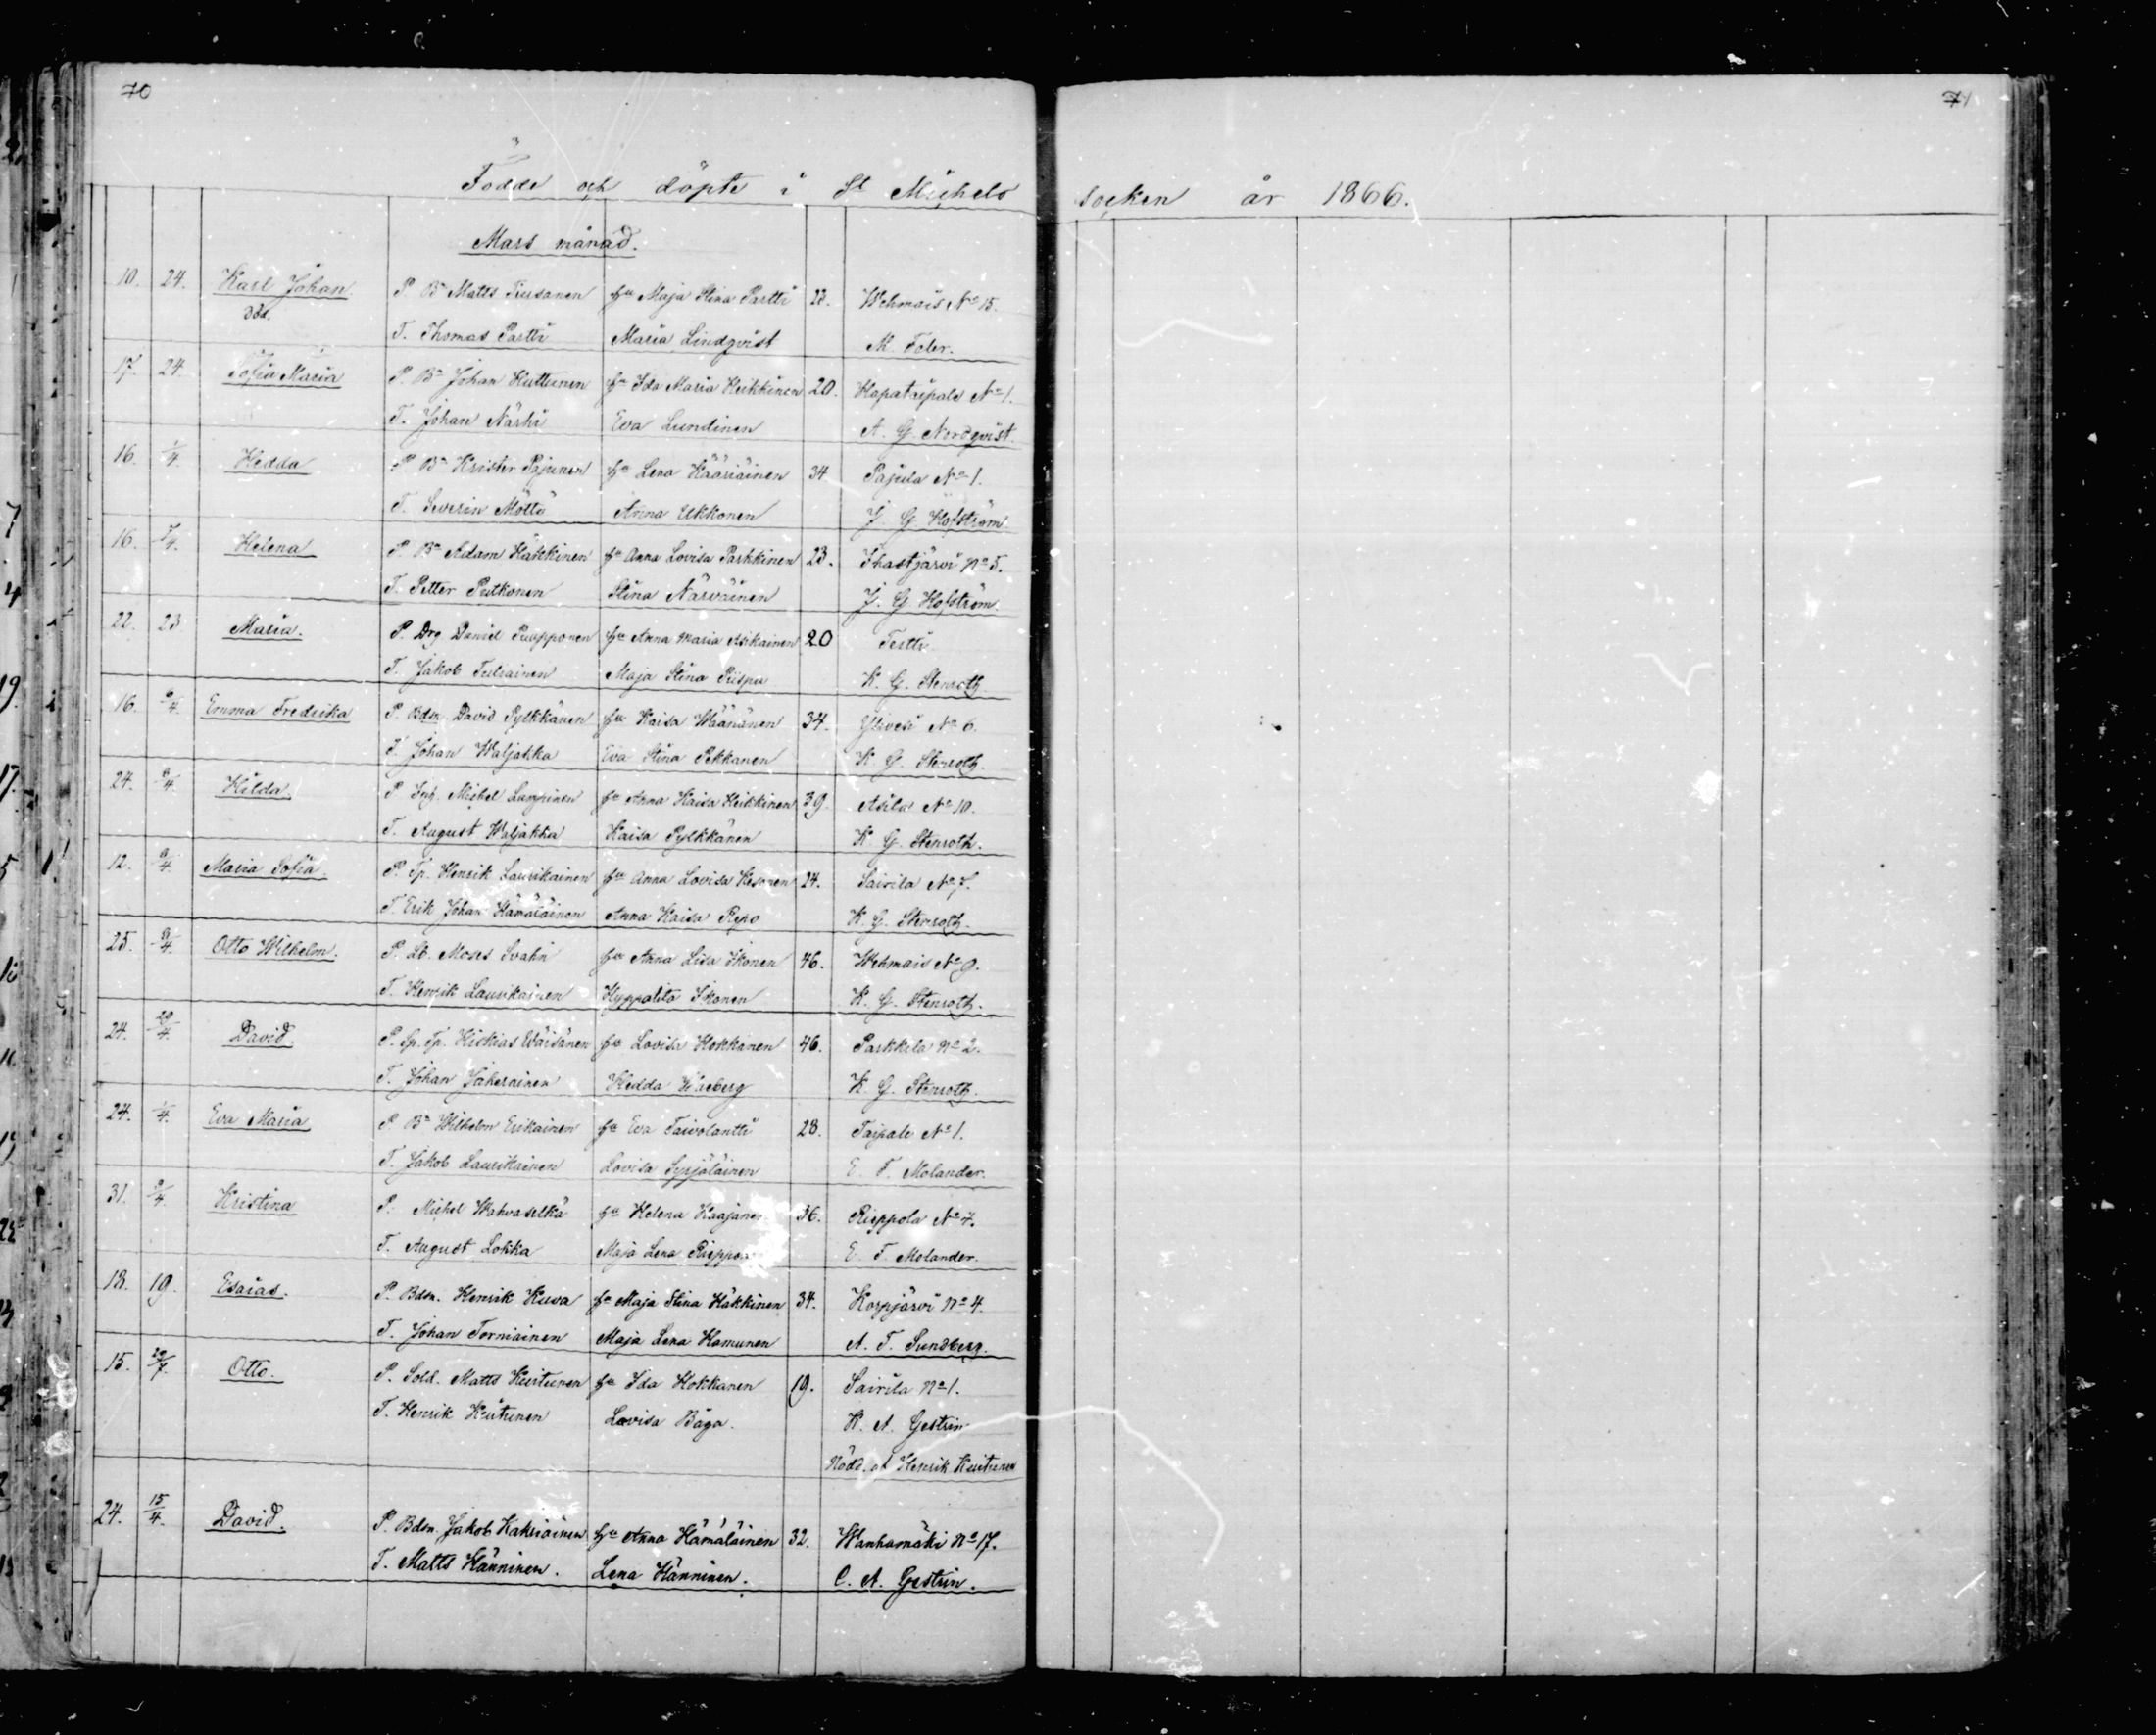 70
71
Födde och döpte i St Michels socken år 1866.
Mars månad.
10. 24. Karl Johan P. Bn Matts Pursanen hu Maja Stina Partti 22. Wehmais No 15.
död. T. Thomas Partti Maria Lindqvist M. Foler.
17. 24. Sofia Maria P. Bn Johan Kuttunen hu Ida Maria Heikkinen 20. Hapataipale No 1.
T. Johan Närhi Eva Lundinen A. G. Nordqvist.
16. 1/4. Hedda P. Bn Krister Pajunen hu Lena Kääriäinen 34 Pajula No 1.
T. Severin Möttö Anna Ukkonen J. G. Hofström.
16. 7/4. Helena P. Bn Adam Häkkinen hu Anna Lovisa Parkkinen 23. Ihastjärvi No 5.
T. Petter Putkonen Stina Närväinen J. G. Hofström.
22. 23 Maria. P. Drg Daniel Purpponen hu Anna Maria Asikainen 20 Tertti
T. Jakob Tuliainen Maja Stina Piispa K. G. Stenroth.
16. 6/4. Emma Fredrika P. Bdsn. David Pylkkänen hu Kaisa Wäänänen 34. Ylivesi No 6.
T. Johan Waljakka Eva Stina Pekkanen K. G. Stenroth.
24. 6/4. Hilda. P. Inh. Michel Lampinen hu Anna Kaisa Heikkinen 39. Asila No 10.
T. August Waljakka Kaisa Pylkkänen K. G. Stenroth.
12. 6/4. Maria Sofia. P. Tp. Henrik Laurikainen hu Anna Lovisa Kesonen 24. Sairila No 7.
T. Erik Johan Hämäläinen Anna Kaisa Repo K. G. Stenroth.
25. 8/4. Otto Wilhelm. P. Lb. Moses Svahn hu Anna Lisa Ikonen 46. Wehmais No 9.
T. Henrik Laurikainen Hyppolita Ikonen K. G. Stenroth.
24. 29/4. David. P. Sp. Tp. Hiskias Wäisänen hu Lovisa Hokkanen 46. Parkkila No 2.
T. Johan Jakerainen Hedda Waeberg K. G. Stenroth.
24. 1/4. Eva Maria P. Bn Wilhelm Erikainen hu Eva Taivolantti 28. Taipale No 1.
T. Jakob Laurikainen Lovisa Syrjäläinen E. F. Molander.
31. 2/4. Kristina P. Michel Wahvaselkä hu Helena Kaajanen 36. Rieppola No 4.
T. August Lokka Maja Lena E. F. Molander.
18. 19. Esaias. P. Bdsn. Henrik Kuva hu Maja Stina Häkkinen 34. Korpjärvi No 4.
T. Johan Torniainen Maja Lena Hamunen A. F. Sundberg.
15. 29/4. Otto. P. Sold. Matts Kuitunen hu Ida Hokkanen 19. Sairila No 1.
T. Henrik Kuitunen Lovisa Båga. K. A. Gestrin
Nödd. af Henrik Kuitunen
24. 15/4. David. P. Bdsn. Jakob Kakriainen hu Anna Hämäläinen 32. Wanhamäki No 17.
T. Matts Hänninen. Lena Hänninen. C. A. Gestrin.